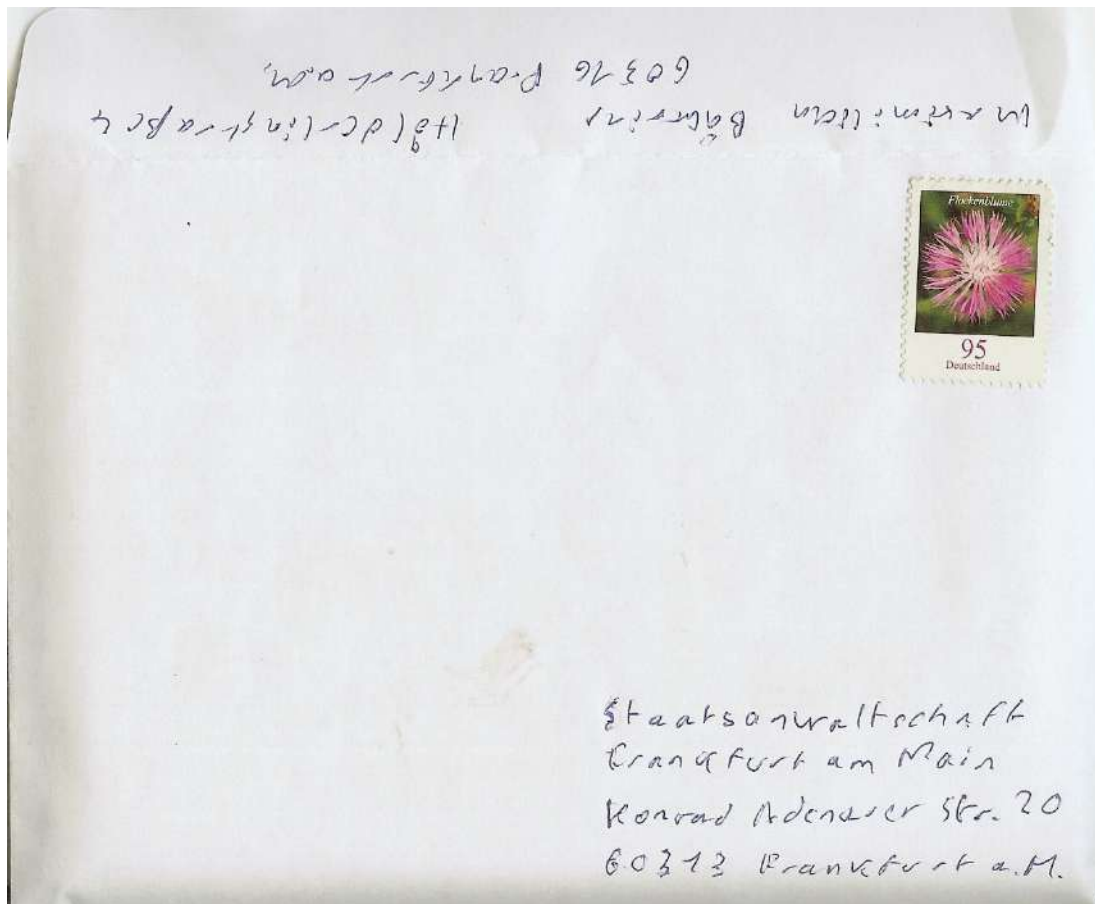 Maximilian Hölderlinstraße 4
60316 Frankfurt a.M.
Flockenblume
95
Deutschland
Staatsanwaltschaft
Frankfurt am Main
Konrad Adenauer Str. 20
60313 Frankfurt a.M.